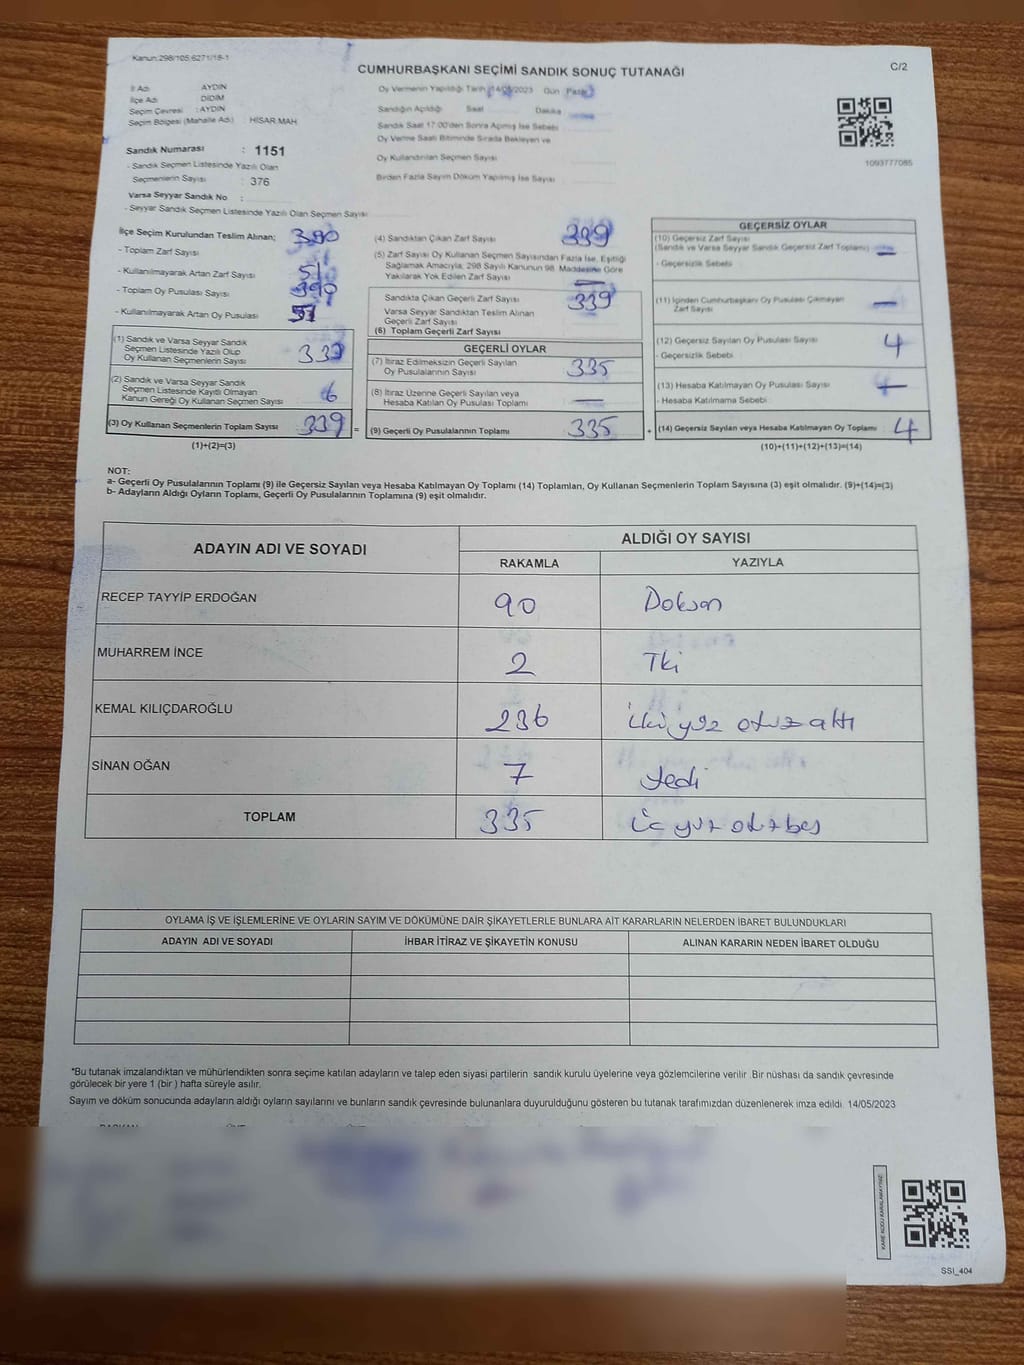 Kanun:298/105,6271/18-1
CUMHURBAŞKANI SEÇİMİ SANDIK SONUÇ TUTANAĞI
C/2
İl Adı AYDIN
İlçe Adı DİDİM
Seçim Çevresi : AYDIN
Seçim Bölgesi (Mahalle Adı) HİSAR MAH
Sandık Numarası : 1151
- Sandık Seçmen Listesinde Yazılı Olan
Seçmenlerin Sayısı : 376
Varsa Seyyar Sandık No :
- Seyyar Sandık Seçmen Listesinde Yazılı Olan Seçmen Sayısı
Oy Vermenin Yapıldığı Tarih 14/05/2023 Gün Pazar
Sandığın Açıldığı Saat Dakika
Sandık Saat 17:00'den Sonra Açılmış İse Sebebi
Oy Verme Saati Bitiminde Sırada Bekleyen ve
Oy Kullandırılan Seçmen Sayısı
Birden Fazla Sayım Döküm Yapılmış İse Sayısı
1093777085
İlçe Seçim Kurulundan Teslim Alınan; 390
- Toplam Zarf Sayısı
- Kullanılmayarak Artan Zarf Sayısı 51
- Toplam Oy Pusulası Sayısı 390
- Kullanılmayarak Artan Oy Pusulası 51
(1) Sandık ve Varsa Seyyar Sandık
Seçmen Listesinde Yazılı Olup
Oy Kullanan Seçmenlerin Sayısı
(2) Sandık ve Varsa Seyyar Sandık
Seçmen Listesinde Kayıtlı Olmayan
Kanun Gereği Oy Kullanan Seçmen Sayısı 6
(3) Oy Kullanan Seçmenlerin Toplam Sayısı 339 =
(1)+(2)=(3)
(4) Sandıktan Çıkan Zarf Sayısı 339
(5) Zarf Sayısı Oy Kullanan Seçmen Sayısından Fazla İse, Eşitliği
Sağlamak Amacıyla, 298 Sayılı Kanunun 98. Maddesine Göre
Yakılarak Yok Edilen Zarf Sayısı —
Sandıkta Çıkan Geçerli Zarf Sayısı 339
Varsa Seyyar Sandıktan Teslim Alınan
Geçerli Zarf Sayısı
(6) Toplam Geçerli Zarf Sayısı
GEÇERLİ OYLAR
(7) İtiraz Edilmeksizin Geçerli Sayılan
Oy Pusulalarının Sayısı 335
(8) İtiraz Üzerine Geçerli Sayılan veya
Hesaba Katılan Oy Pusulası Toplamı —
(9) Geçerli Oy Pusulalarının Toplamı 335 +
GEÇERSİZ OYLAR
(10) Geçersiz Zarf Sayısı
(Sandık ve Varsa Seyyar Sandık Geçersiz Zarf Toplamı) —
- Geçersizlik Sebebi
(11) İçinden Cumhurbaşkanı Oy Pusulası Çıkmayan
Zarf Sayısı —
(12) Geçersiz Sayılan Oy Pusulası Sayısı 4
- Geçersizlik Sebebi
(13) Hesaba Katılmayan Oy Pusulası Sayısı
- Hesaba Katılmama Sebebi
(14) Geçersiz Sayılan veya Hesaba Katılmayan Oy Toplamı 4
(10)+(11)+(12)+(13)=(14)
NOT:
a- Geçerli Oy Pusulalarının Toplamı (9) ile Geçersiz Sayılan veya Hesaba Katılmayan Oy Toplamı (14) Toplamları, Oy Kullanan Seçmenlerin Toplam Sayısına (3) eşit olmalıdır. (9)+(14)=(3)
b- Adayların Aldığı Oyların Toplamı, Geçerli Oy Pusulalarının Toplamına (9) eşit olmalıdır.
ADAYIN ADI VE SOYADI ALDIĞI OY SAYISI
RAKAMLA YAZIYLA
RECEP TAYYİP ERDOĞAN 90 Doksan
MUHARREM İNCE 2 İki
KEMAL KILIÇDAROĞLU 236 iki yüz otuz altı
SİNAN OĞAN 7 yedi
TOPLAM 335 üç yüz otuz beş
OYLAMA İŞ VE İŞLEMLERİNE VE OYLARIN SAYIM VE DÖKÜMÜNE DAİR ŞİKAYETLERLE BUNLARA AİT KARARLARIN NELERDEN İBARET BULUNDUKLARI
ADAYIN ADI VE SOYADI İHBAR İTİRAZ VE ŞİKAYETİN KONUSU ALINAN KARARIN NEDEN İBARET OLDUĞU
*Bu tutanak imzalandıktan ve mühürlendikten sonra seçime katılan adayların ve talep eden siyasi partilerin sandık kurulu üyelerine veya gözlemcilerine verilir .Bir nüshası da sandık çevresinde
görülecek bir yere 1 (bir ) hafta süreyle asılır.
Sayım ve döküm sonucunda adayların aldığı oyların sayılarını ve bunların sandık çevresinde bulunanlara duyurulduğunu gösteren bu tutanak tarafımızdan düzenlenerek imza edildi. 14/05/2023
KARE KODU KARALAMAYINIZ
SSİ_404